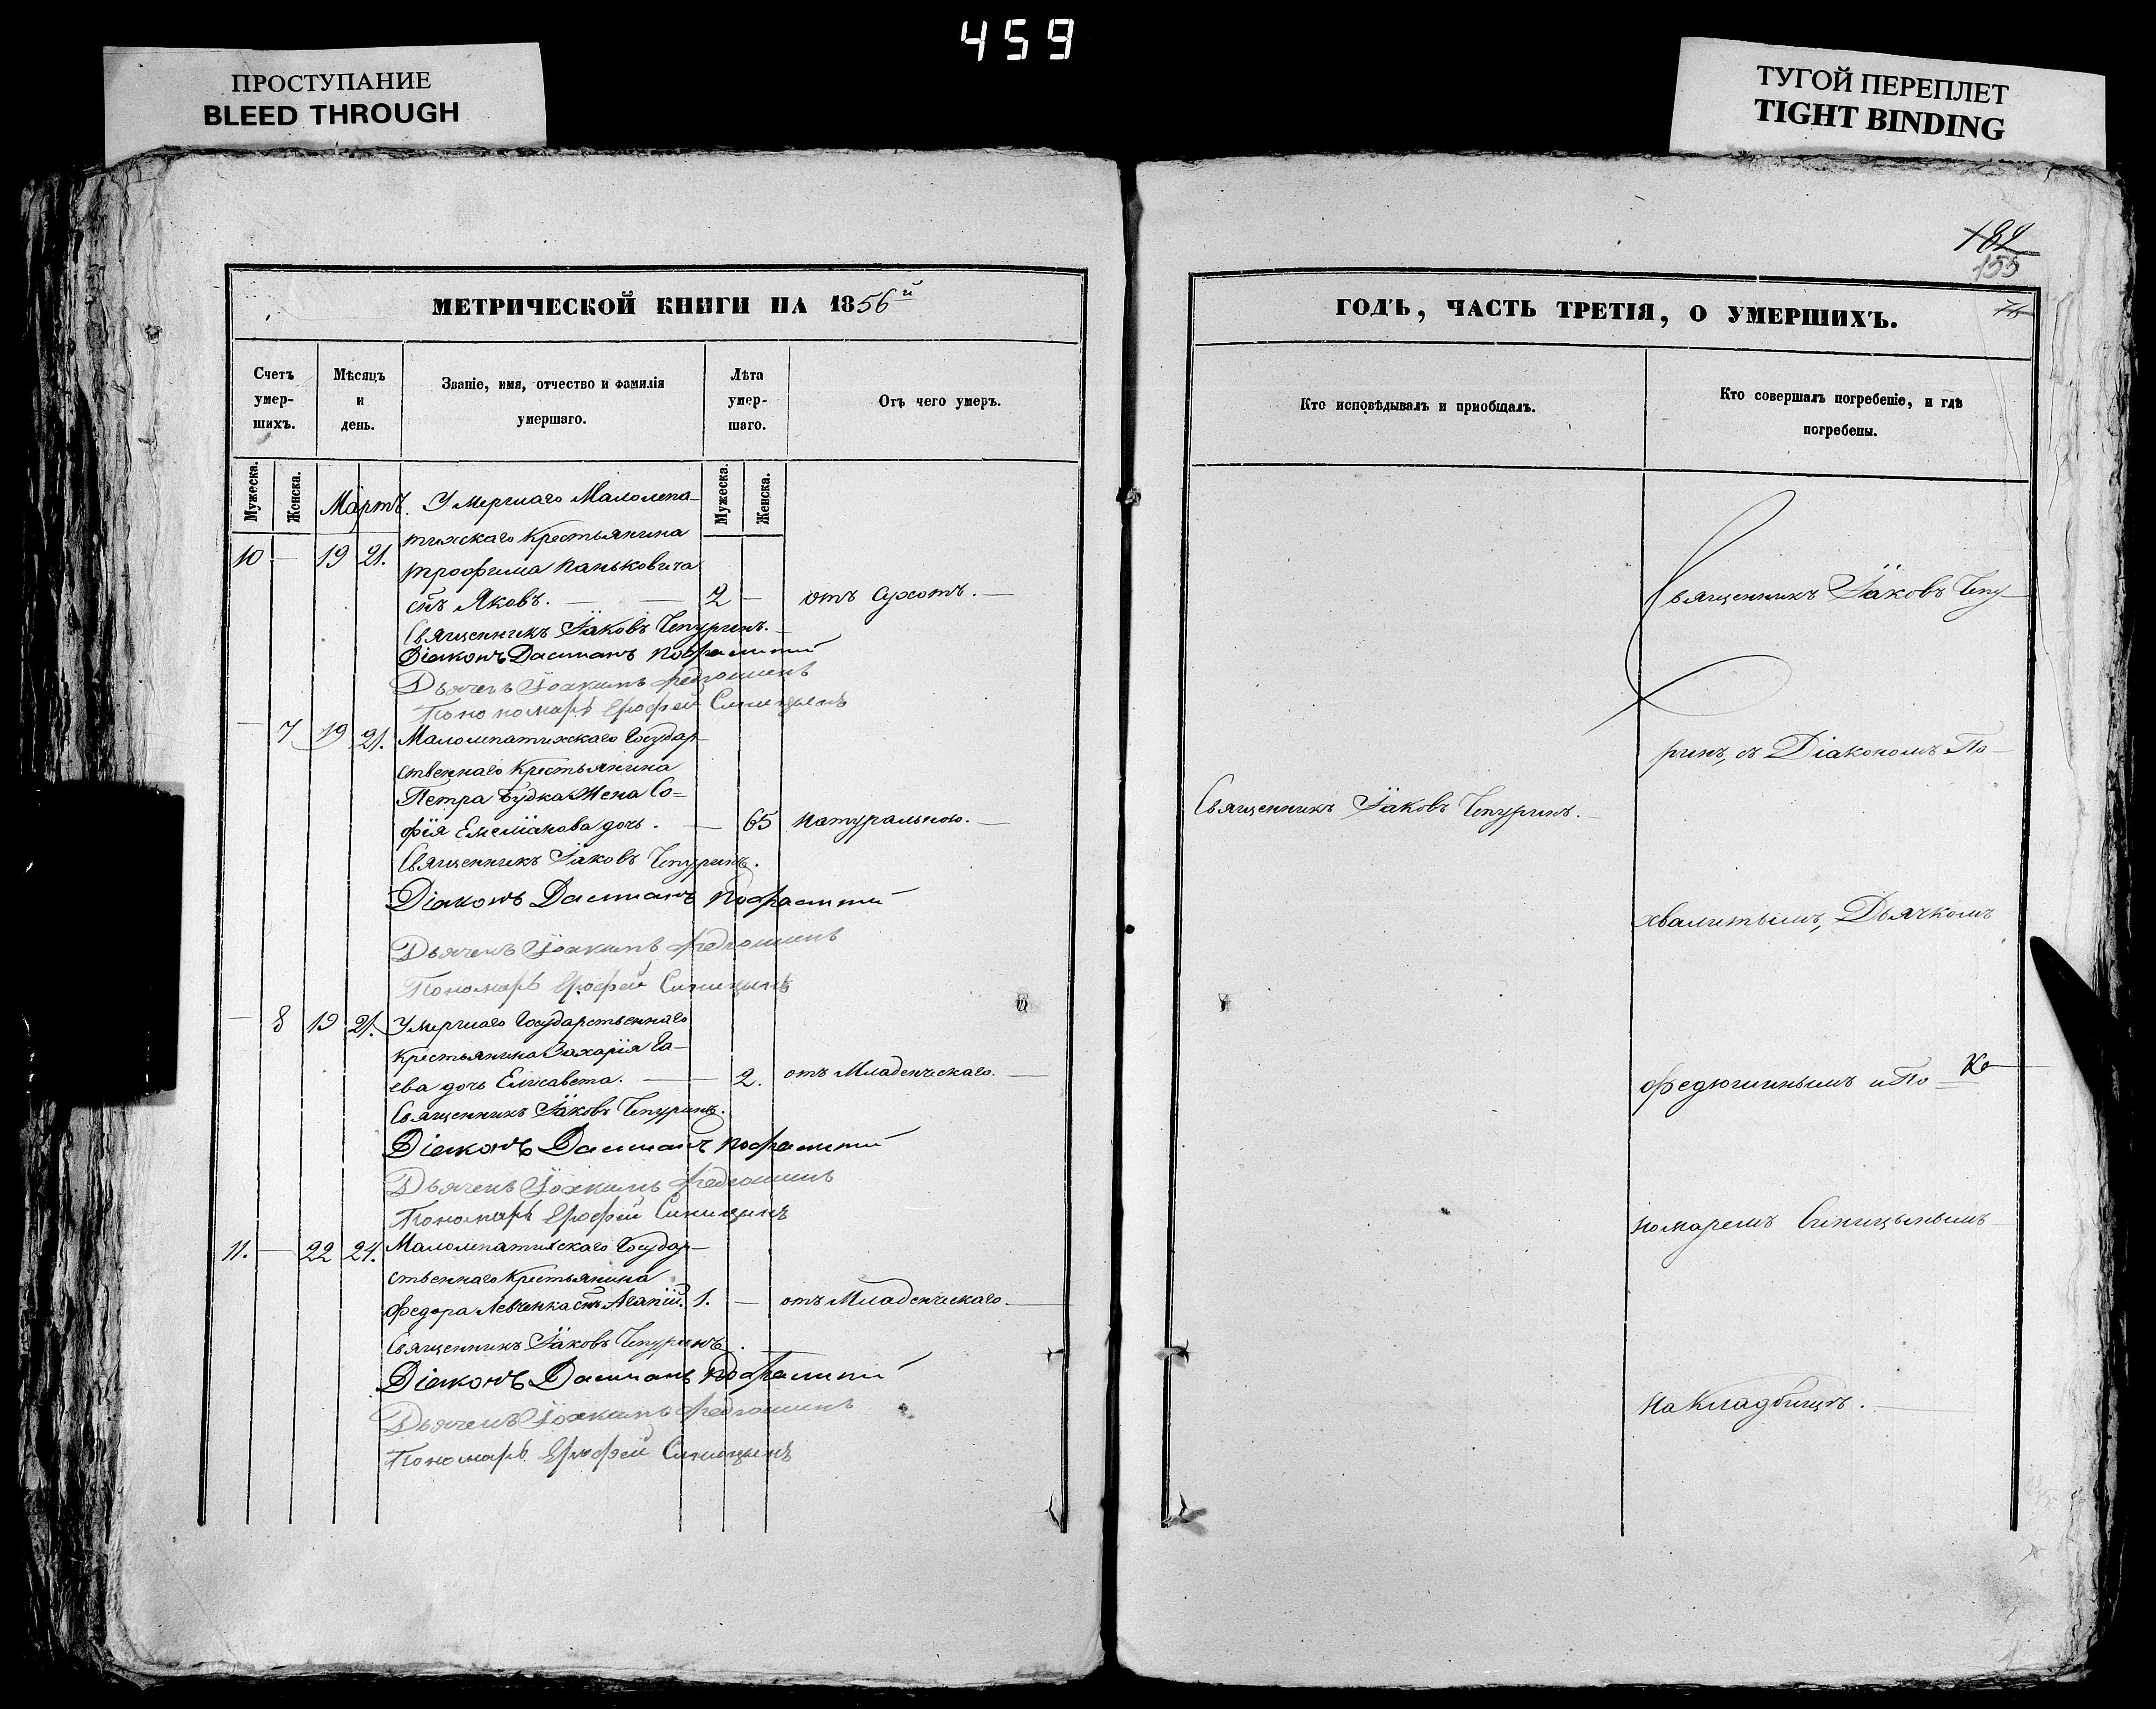 459
ПРОСТУПАНИЕ
BLEED THROUGH
ТУГОЙ ПЕРЕПЛЕТ
TIGHT BINDING
184
155
МЕТРИЧЕСКОЙ КНИГИ НА 1856й
Счетъ умер-шихъ.
Мѣсяцъ и день.
Званіе, имя, отчество и фамилія умершаго.
Лѣта умер-шаго.
Отъ чего умеръ.
Мужеска. Женска.
Мужеска. Женска.
Мартъ. Умершаго Малолепа-
тихскаго Крестьянина
10 — 19 21. Трофима Паньковича
снъ Яковъ. — — 2 — отъ Сухотъ. —
Священникъ Іаковъ Чепуринъ.
Діаконъ Даміанъ
Дьячекъ Іоакимъ Федюшинъ
Пономарь Ерофей Синицынъ
— 7 19 21. Малолепатихскаго Государ-
ственнаго Крестьянина
Петра Будка Жена Со-
фія Емеліанова дочь. — 65 Натуральною. —
Священникъ Іаковъ Чепуринъ.
Діаконъ Даміанъ
Дьячекъ Іоакимъ Федюшинъ
Пономарь Ерофей Синицынъ
— 8 19 21. Умершаго Государственнаго
Крестьянина Захарія Га-
ева дочь Елисавета. — 2. отъ Младенческаго. —
Священникъ Іаковъ Чепуринъ.
Діаконъ Даміанъ
Дьячекъ Іоакимъ Федюшинъ
Пономарь Ерофей Синицынъ
11. — 22 24. Малолепатихскаго Государ-
ственнаго Крестьянина
Федора Левченка снъ Агапій. 1. — отъ Младенческаго. —
Священникъ Іаковъ Чепуринъ.
Діаконъ Даміанъ
Дьячекъ Іоакимъ Федюшинъ
Пономарь Ерофей Синицынъ
ГОДЪ, ЧАСТЬ ТРЕТІЯ, О УМЕРШИХЪ.
Кто исповѣдывалъ и пріобщалъ.
Кто совершалъ погребеніе, и гдѣ
погребены.
Священникъ Іаковъ Чепуринъ. —
Священникъ Іаковъ Чепу-
ринъ, съ Діакономъ По-
хвалитымъ, Дьячкомъ
Федюшинымъ и По-
номаремъ Синицынымъ
на Кладбищѣ.